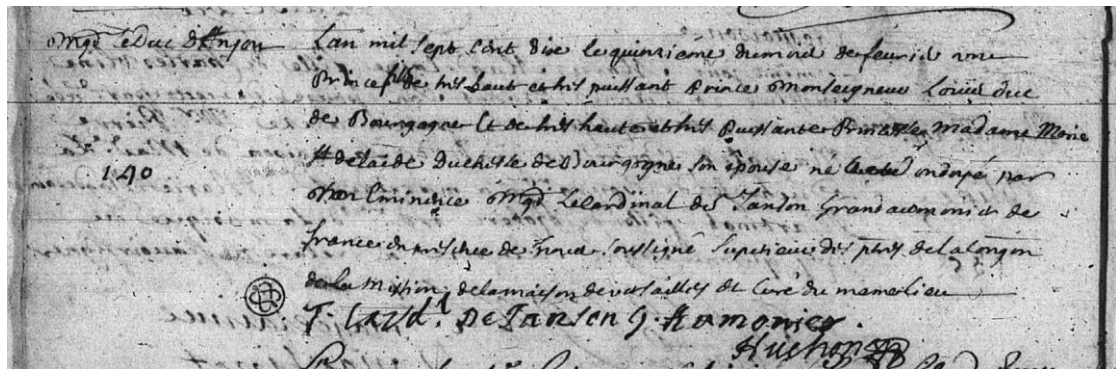 Mgr le Duc d'Anjou
140
Lan mil sept cent dixe le quinzieme du mois de feurier une
Prince fils de tres haut et tres puissant Prince Monseigneur Loüis duc
de Bourgogne Et de tres haute et tres Puissante Princesse Madame Marie
Adelaide Duchesse de Bourgogne son épouse né été ondoyé par
Son Eminence Mgr Le Cardinal de Janson Grand aumonier de
france en presence de soussigné Superieur des prtres de la Congon
de la Mission de la maison de versailles et Curé du meme lieu
T. Card. De Janson G. Aumonier.
Huchon